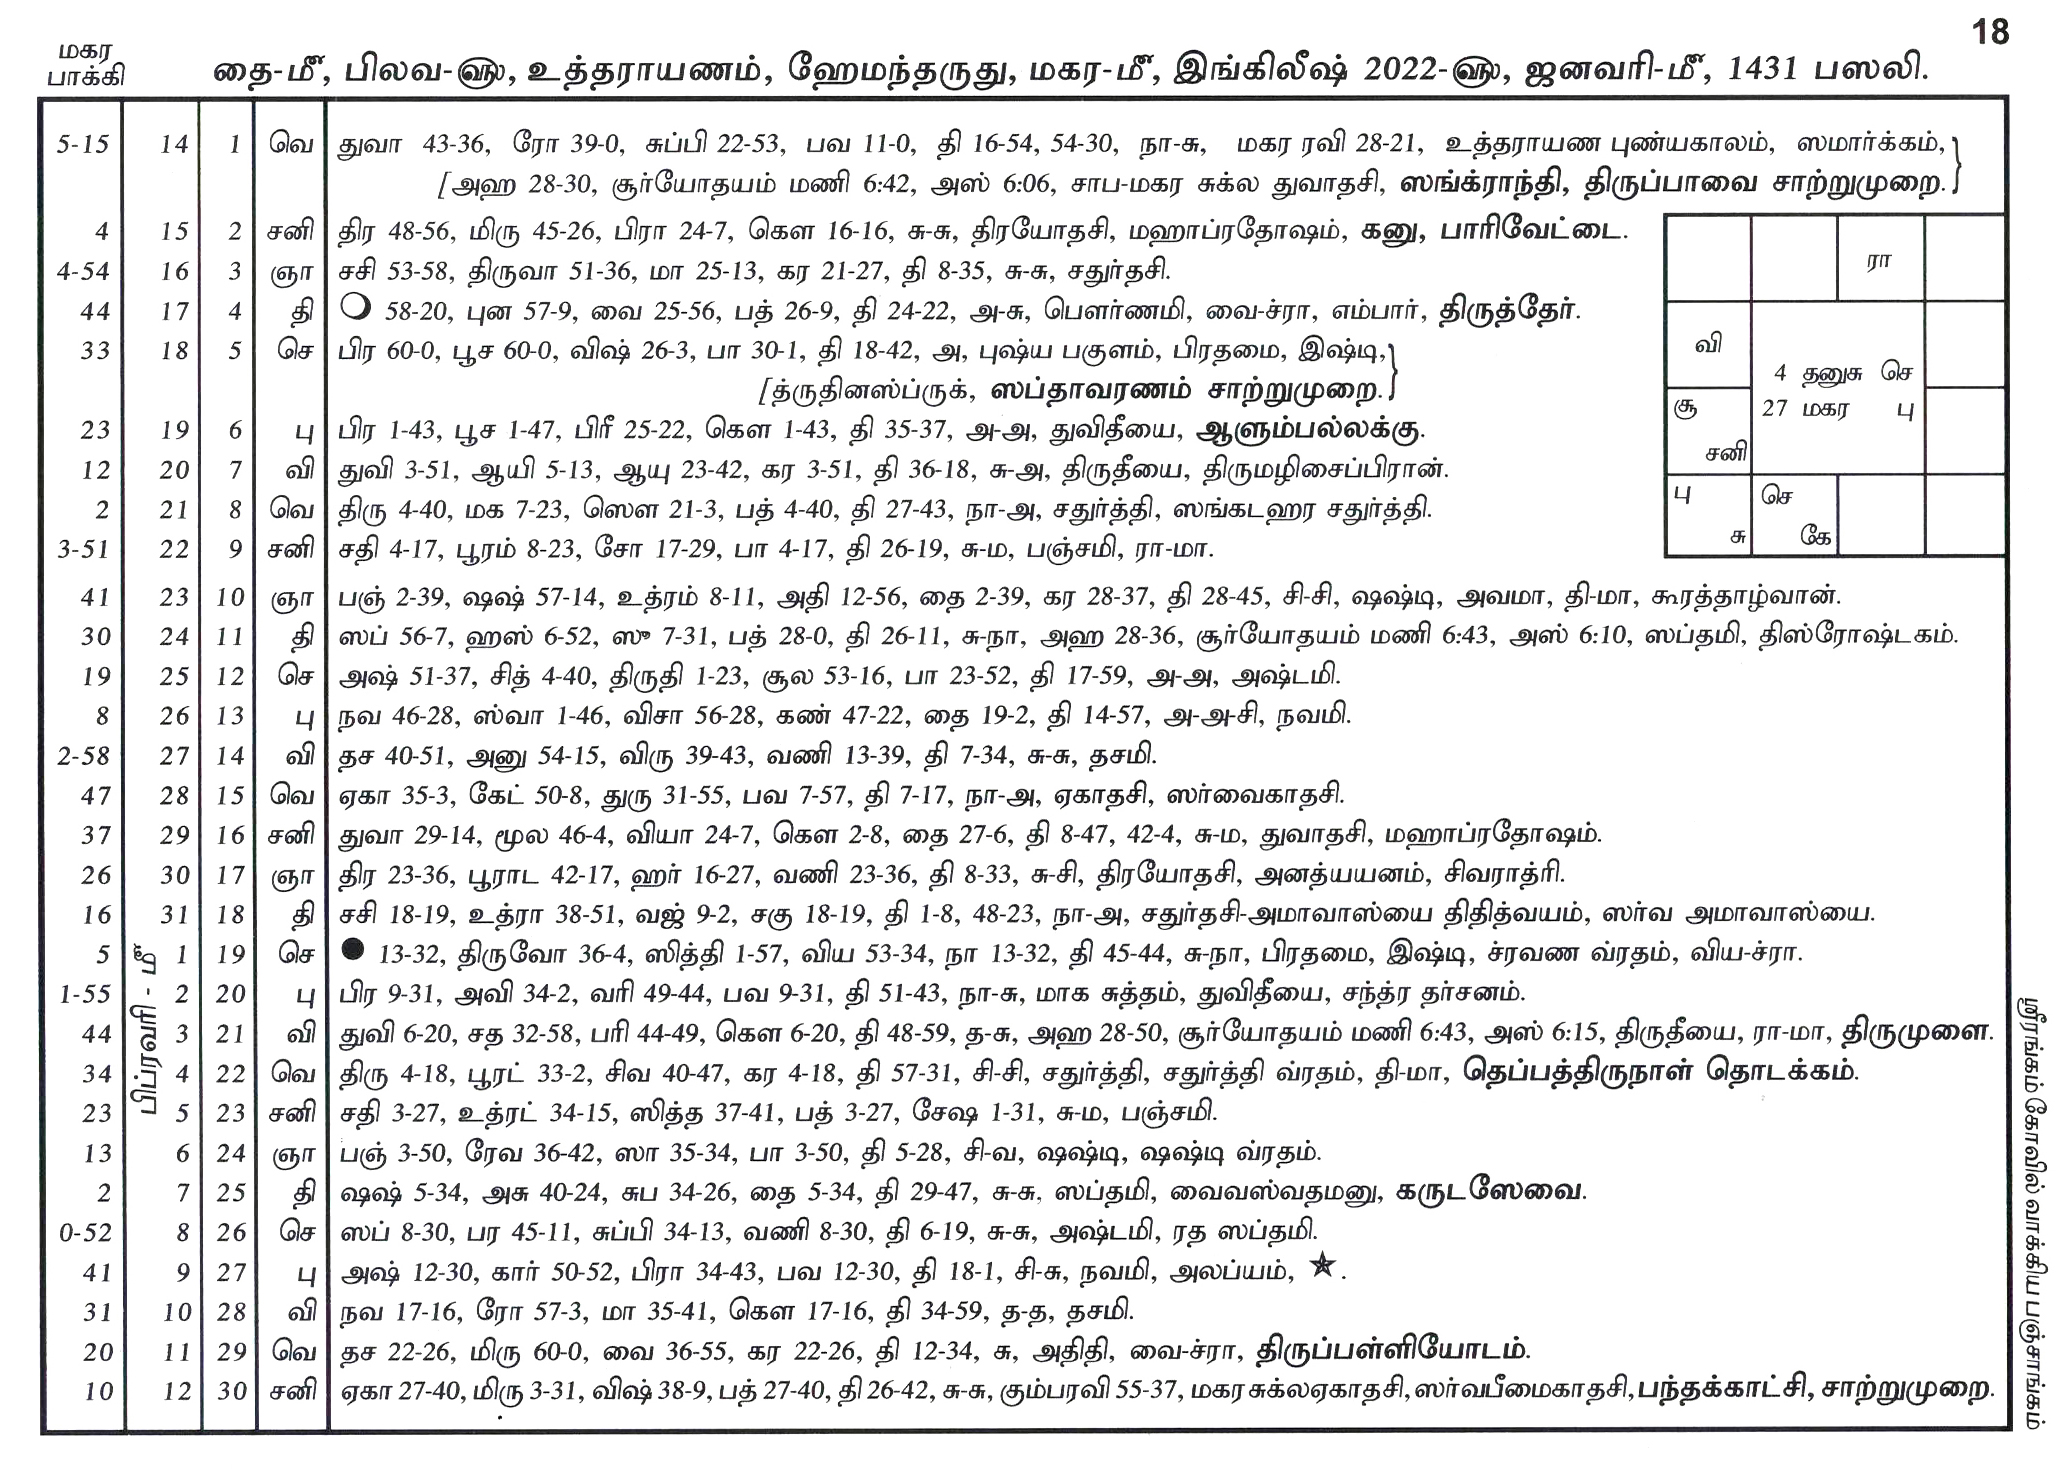 18
மகர
பாக்கி
தை-மீ, பிலவ-௵, உத்தராயணம், ஹேமந்தருது, மகர-மீ, இங்கிலீஷ் 2022-௵, ஜனவரி-மீ, 1431 பஸலி.
5-15 14 1 வெ துவா 43-36, ரோ 39-0, சுப்பி 22-53, பவ 11-0, தி 16-54, 54-30, நா-சு, மகர ரவி 28-21, உத்தராயண புண்யகாலம், ஸமார்க்கம்,}
[அஹ 28-30, சூர்யோதயம் மணி 6:42, அஸ் 6:06, சாப-மகர சுக்ல துவாதசி, ஸங்க்ராந்தி, திருப்பாவை சாற்றுமுறை.}
4 15 2 சனி திர 48-56, மிரு 45-26, பிரா 24-7, கௌ 16-16, சு-சு, திரயோதசி, மஹாப்ரதோஷம், கனு, பாரிவேட்டை.
4-54 16 3 ஞா சசி 53-58, திருவா 51-36, மா 25-13, கர 21-27, தி 8-35, சு-சு, சதுர்தசி.
44 17 4 தி 58-20, புன 57-9, வை 25-56, பத் 26-9, தி 24-22, அ-சு, பௌர்ணமி, வை-ச்ரா, எம்பார், திருத்தேர்.
33 18 5 செ பிர 60-0, பூச 60-0, விஷ் 26-3, பா 30-1, தி 18-42, அ, புஷ்ய பகுளம், பிரதமை, இஷ்டி,}
[த்ருதினஸ்ப்ருக், ஸப்தாவரணம் சாற்றுமுறை.}
23 19 6 பு பிர 1-43, பூச 1-47, பிரீ 25-22, கௌ 1-43, தி 35-37, அ-அ, துவிதீயை, ஆளும்பல்லக்கு.
12 20 7 வி துவி 3-51, ஆயி 5-13, ஆயு 23-42, கர 3-51, தி 36-18, சு-அ, திருதீயை, திருமழிசைப்பிரான்.
2 21 8 வெ திரு 4-40, மக 7-23, ஸௌ 21-3, பத் 4-40, தி 27-43, நா-அ, சதுர்த்தி, ஸங்கடஹர சதுர்த்தி.
3-51 22 9 சனி சதி 4-17, பூரம் 8-23, சோ 17-29, பா 4-17, தி 26-19, சு-ம, பஞ்சமி, ரா-மா.
ரா
வி
4 தனுசு செ
27 மகர பு
சூ
சனி
பு
சு
செ
கே
41 23 10 ஞா பஞ் 2-39, ஷஷ் 57-14, உத்ரம் 8-11, அதி 12-56, தை 2-39, கர 28-37, தி 28-45, சி-சி, ஷஷ்டி, அவமா, தி-மா, கூரத்தாழ்வான்.
30 24 11 தி ஸப் 56-7, ஹஸ் 6-52, ஸு 7-31, பத் 28-0, தி 26-11, சு-நா, அஹ 28-36, சூர்யோதயம் மணி 6:43, அஸ் 6:10, ஸப்தமி, திஸ்ரோஷ்டகம்.
19 25 12 செ அஷ் 51-37, சித் 4-40, திருதி 1-23, சூல 53-16, பா 23-52, தி 17-59, அ-அ, அஷ்டமி.
8 26 13 பு நவ 46-28, ஸ்வா 1-46, விசா 56-28, கண் 47-22, தை 19-2, தி 14-57, அ-அ-சி, நவமி.
2-58 27 14 வி தச 40-51, அனு 54-15, விரு 39-43, வணி 13-39, தி 7-34, சு-சு, தசமி.
47 28 15 வெ ஏகா 35-3, கேட் 50-8, துரு 31-55, பவ 7-57, தி 7-17, நா-அ, ஏகாதசி, ஸர்வைகாதசி.
37 29 16 சனி துவா 29-14, மூல 46-4, வியா 24-7, கௌ 2-8, தை 27-6, தி 8-47, 42-4, சு-ம, துவாதசி, மஹாப்ரதோஷம்.
26 30 17 ஞா திர 23-36, பூராட 42-17, ஹர் 16-27, வணி 23-36, தி 8-33, சு-சி, திரயோதசி, அனத்யயனம், சிவராத்ரி.
16 31 18 தி சசி 18-19, உத்ரா 38-51, வஜ் 9-2, சகு 18-19, தி 1-8, 48-23, நா-அ, சதுர்தசி-அமாவாஸ்யை திதித்வயம், ஸர்வ அமாவாஸ்யை.
பிப்ரவரி - மீ
5 1 19 செ 13-32, திருவோ 36-4, ஸித்தி 1-57, விய 53-34, நா 13-32, தி 45-44, சு-நா, பிரதமை, இஷ்டி, ச்ரவண வ்ரதம், விய-ச்ரா.
1-55 2 20 பு பிர 9-31, அவி 34-2, வரி 49-44, பவ 9-31, தி 51-43, நா-சு, மாக சுத்தம், துவிதீயை, சந்த்ர தர்சனம்.
44 3 21 வி துவி 6-20, சத 32-58, பரி 44-49, கௌ 6-20, தி 48-59, த-சு, அஹ 28-50, சூர்யோதயம் மணி 6:43, அஸ் 6:15, திருதீயை, ரா-மா, திருமுளை.
34 4 22 வெ திரு 4-18, பூரட் 33-2, சிவ 40-47, கர 4-18, தி 57-31, சி-சி, சதுர்த்தி, சதுர்த்தி வ்ரதம், தி-மா, தெப்பத்திருநாள் தொடக்கம்.
23 5 23 சனி சதி 3-27, உத்ரட் 34-15, ஸித்த 37-41, பத் 3-27, சேஷ 1-31, சு-ம, பஞ்சமி.
13 6 24 ஞா பஞ் 3-50, ரேவ 36-42, ஸா 35-34, பா 3-50, தி 5-28, சி-வ, ஷஷ்டி, ஷஷ்டி வ்ரதம்.
2 7 25 தி ஷஷ் 5-34, அசு 40-24, சுப 34-26, தை 5-34, தி 29-47, சு-சு, ஸப்தமி, வைவஸ்வதமனு, கருடஸேவை.
0-52 8 26 செ ஸப் 8-30, பர 45-11, சுப்பி 34-13, வணி 8-30, தி 6-19, சு-சு, அஷ்டமி, ரத ஸப்தமி.
41 9 27 பு அஷ் 12-30, கார் 50-52, பிரா 34-43, பவ 12-30, தி 18-1, சி-சு, நவமி, அலப்யம், ★.
31 10 28 வி நவ 17-16, ரோ 57-3, மா 35-41, கௌ 17-16, தி 34-59, த-த, தசமி.
20 11 29 வெ தச 22-26, மிரு 60-0, வை 36-55, கர 22-26, தி 12-34, சு, அதிதி, வை-ச்ரா, திருப்பள்ளியோடம்.
10 12 30 சனி ஏகா 27-40, மிரு 3-31, விஷ் 38-9, பத் 27-40, தி 26-42, சு-சு, கும்பரவி 55-37, மகர சுக்லஏகாதசி, ஸர்வபீமைகாதசி, பந்தக்காட்சி, சாற்றுமுறை.
ஸ்ரீரங்கம் கோவில் வாக்கிய பஞ்சாங்கம்